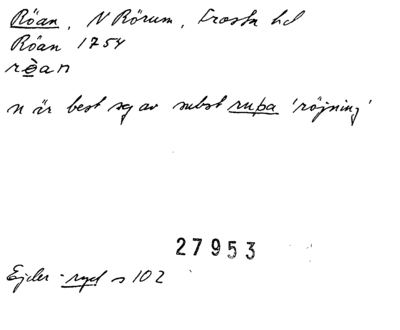 Röan, N Rörum, Frosta hd
Röan 1754
rèan
n är best sg av subst rupa 'röjning'
27953
Ejder -ryd s 102